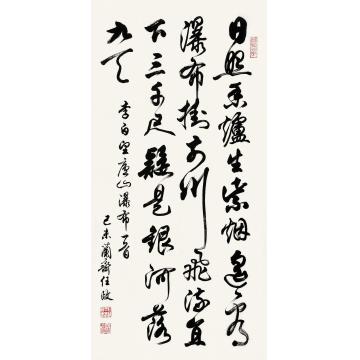 日照香爐生紫烟遙看
瀑布掛前川飛流直
下三千尺疑是銀河落
九天
李白望廬山瀑布一首
己未蘭齋任政